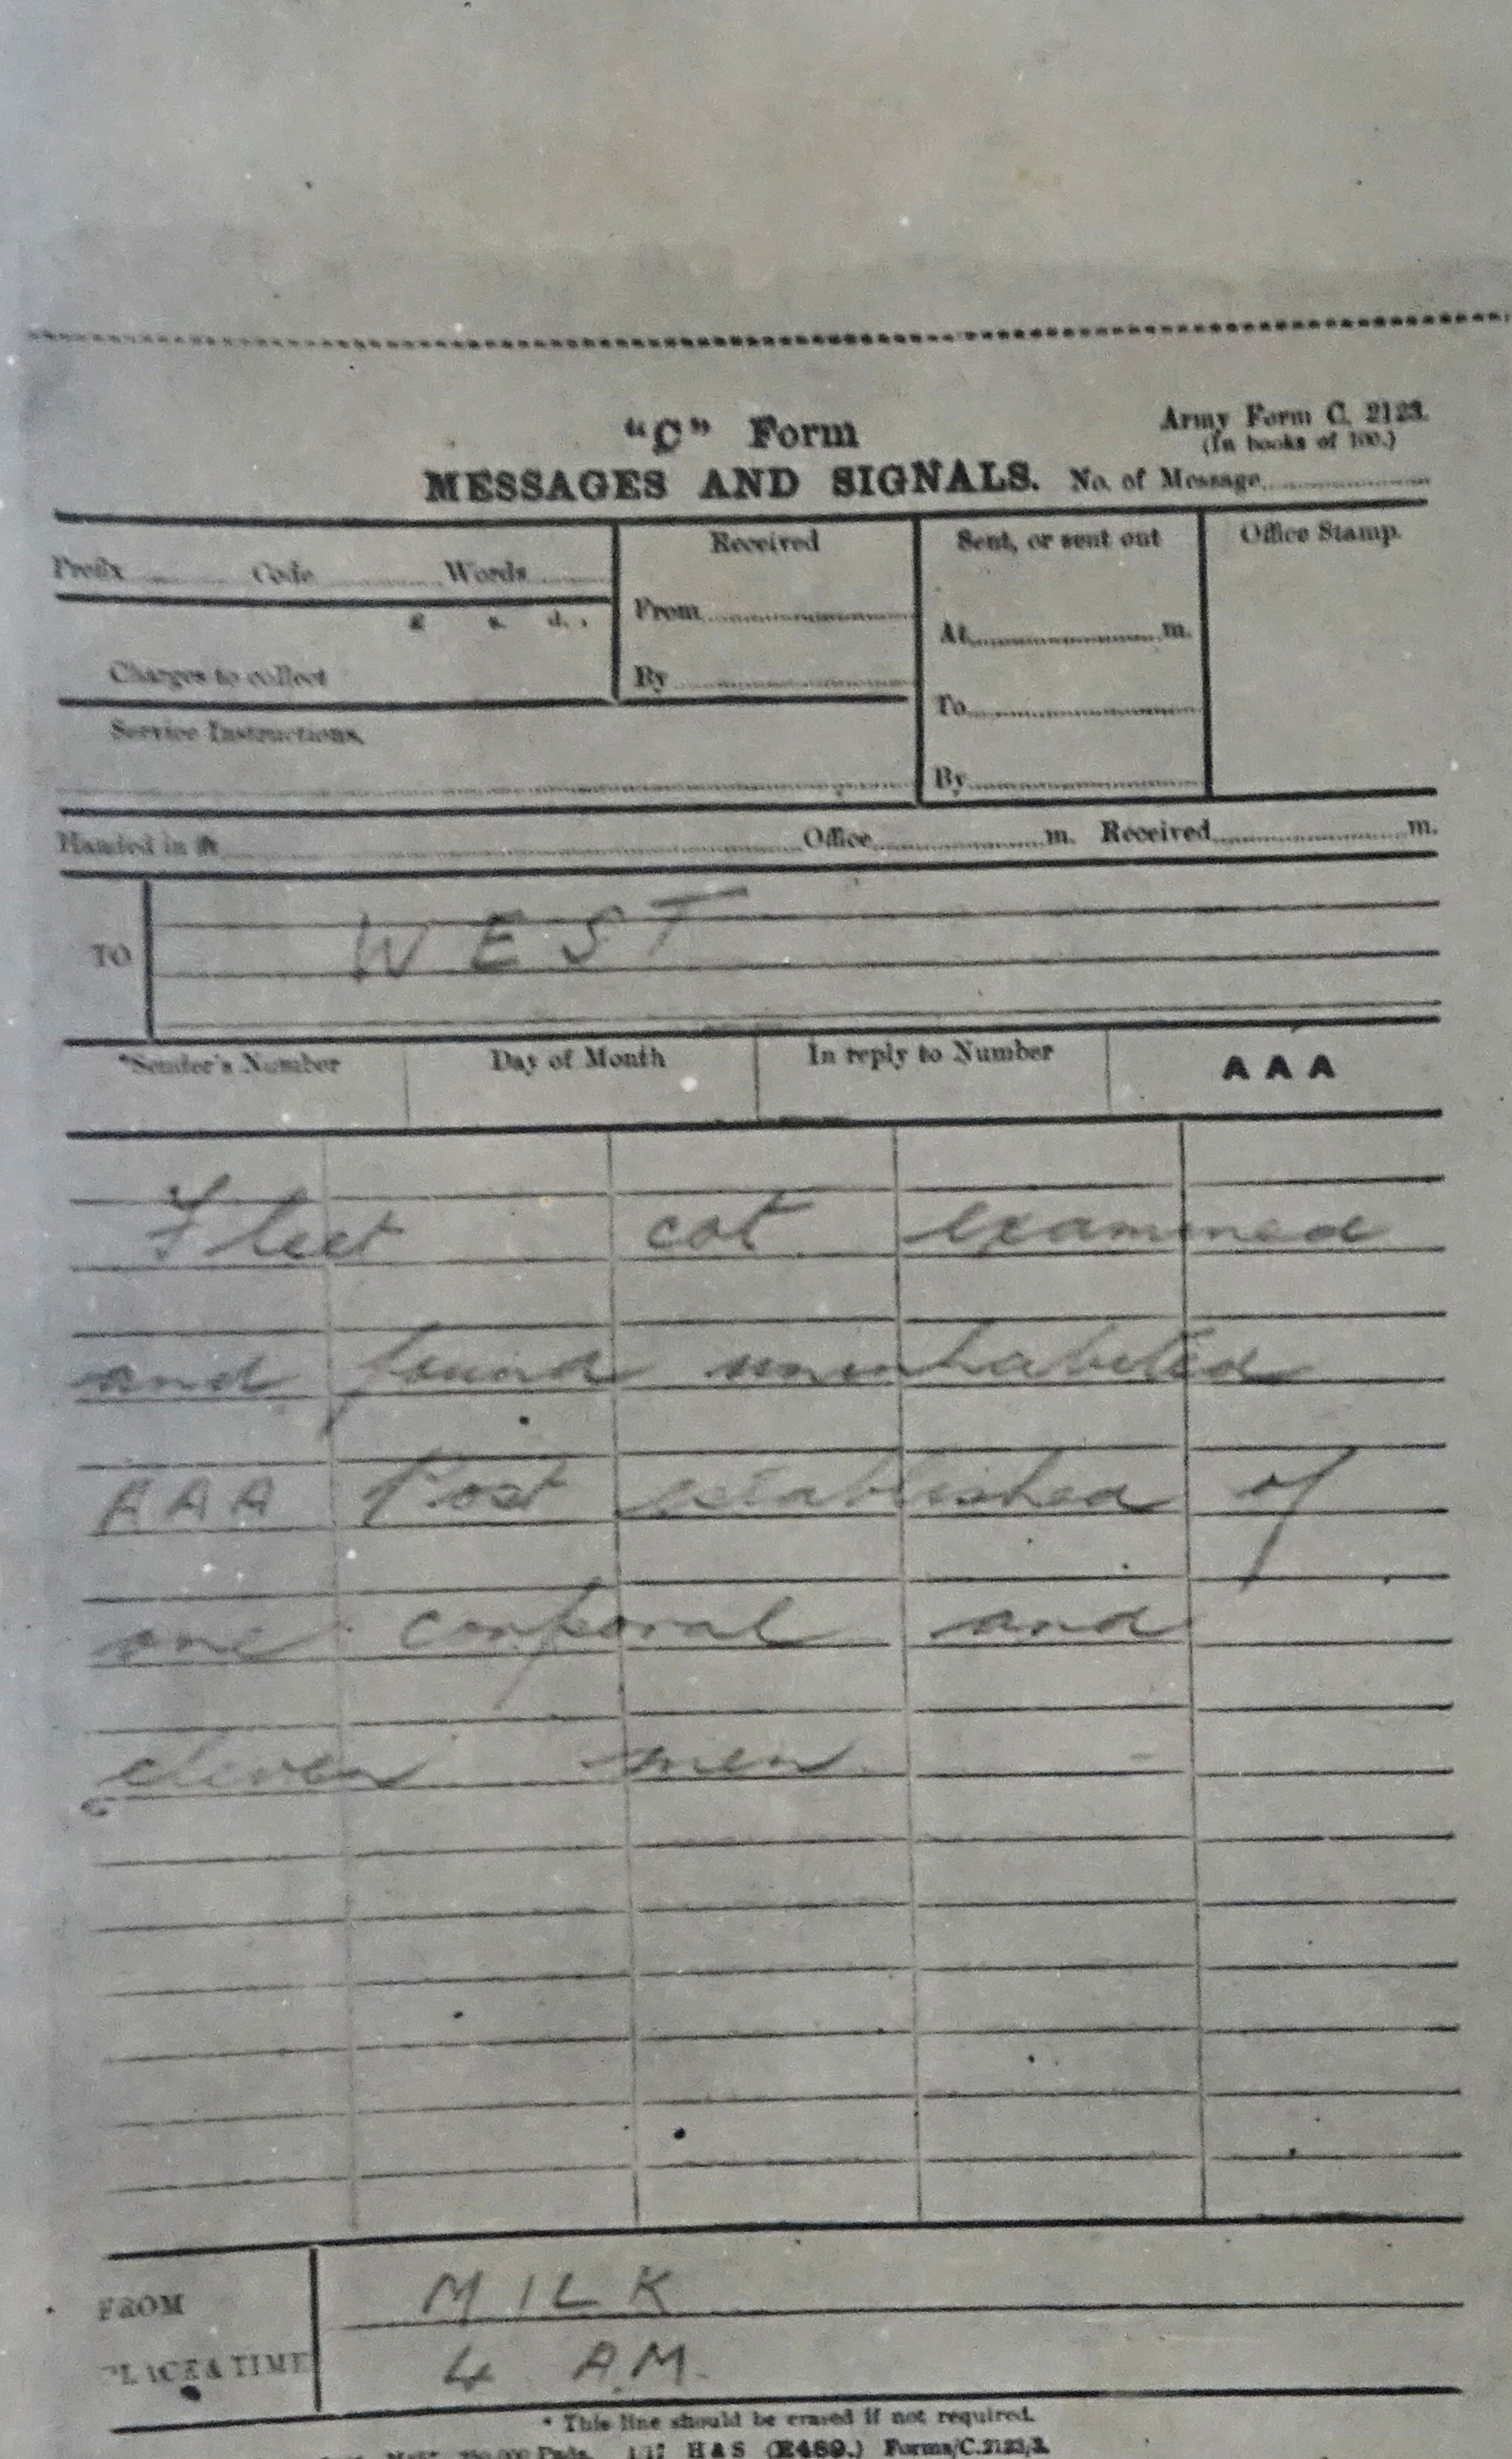 "C" Form
Army Form C. 2123.
(In books of 100.)
MESSAGES AND SIGNALS. No. of Message
Prefix Code Words
Received
Sent, or sent out
Office Stamp.
£ s. d.
From
At m.
Charges to collect
By
To
Service Instructions.
By
Handed in at Office m. Received m.
TO
WEST
*Sender's Number
Day of Month
In reply to Number
AAA
Fleet cot examined
and found uninhabited
AAA Post established of
one corporal and
eleven men.
FROM
MILK
PLACE & TIME
4 A.M.
* This line should be erased if not required.
Pads. 1/17 H & S (E489.) Forms/C.2123/3.